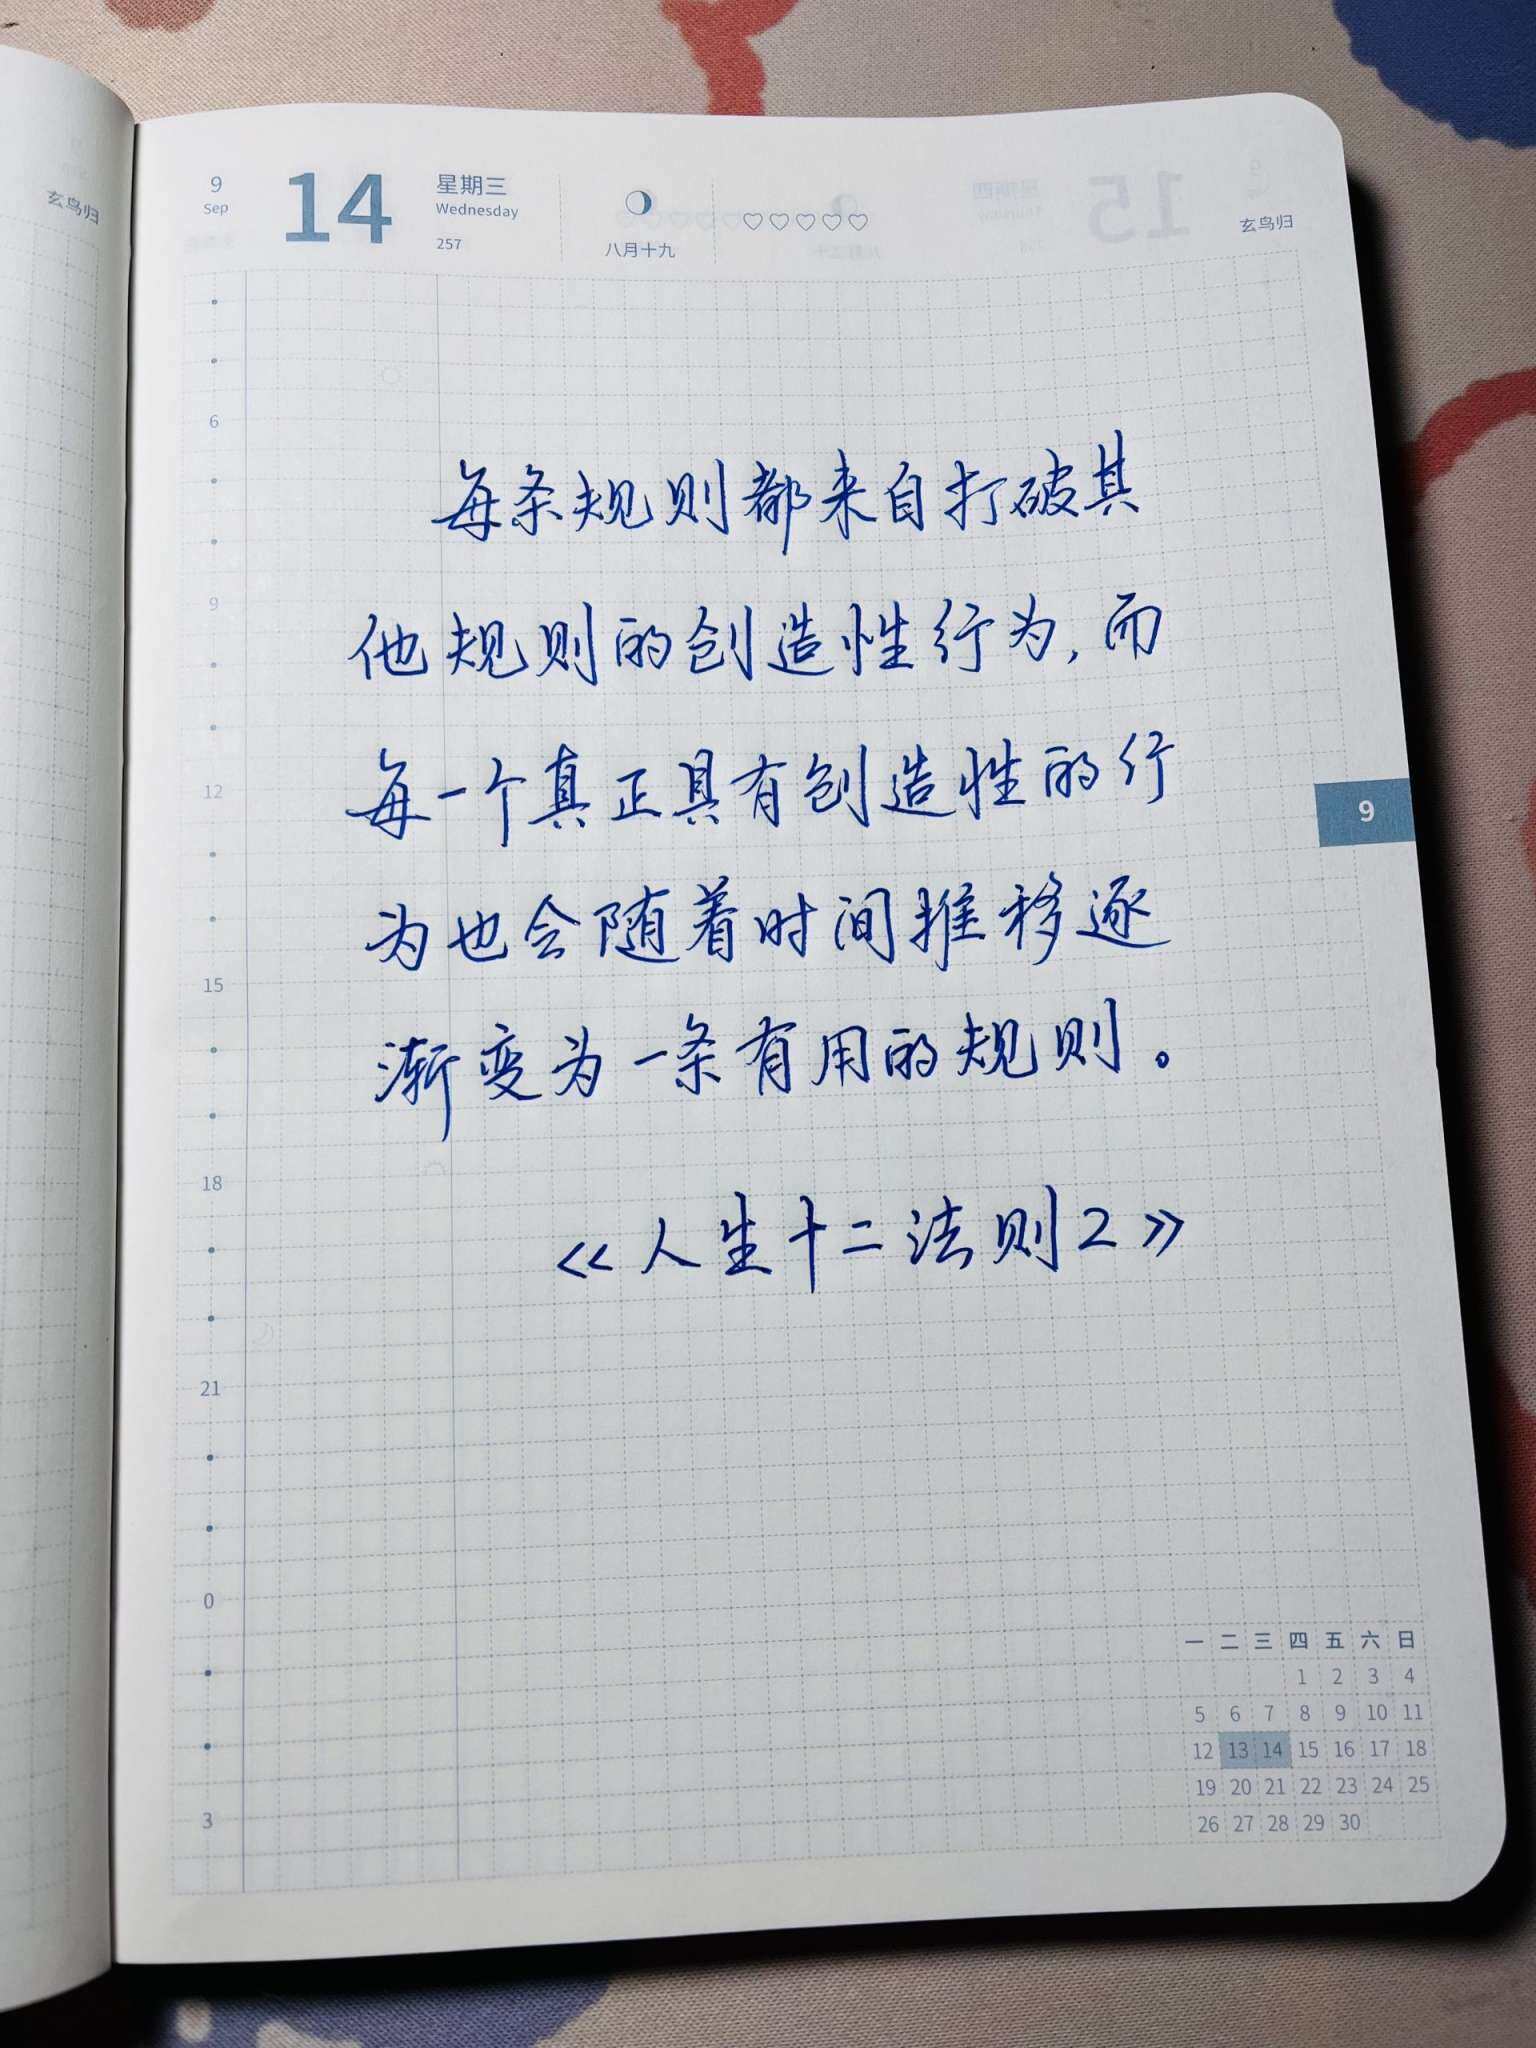 玄鸟归
9
Sep
14
星期三
Wednesday
257
八月十九
玄鸟归
6
每条规则都来自打破其
9
他规则的创造性行为,而
12
每一个真正具有创造性的行
9
为也会随着时间推移逐
15
渐变为一条有用的规则。
18
《人生十二法则2》
21
0
3
一 二 三 四 五 六 日
1 2 3 4
5 6 7 8 9 10 11
12 13 14 15 16 17 18
19 20 21 22 23 24 25
26 27 28 29 30